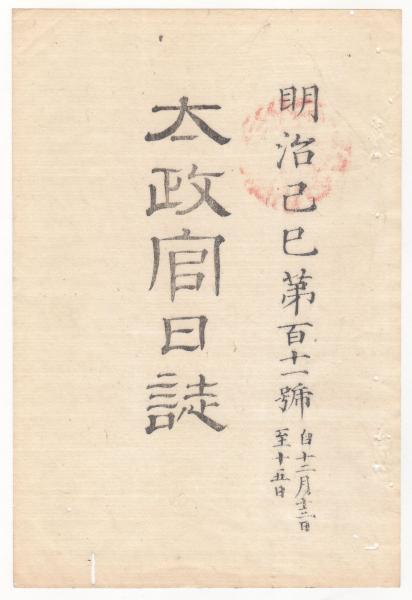 明治己巳第百十一號
自十二月十三日
至十五日
太政官日誌